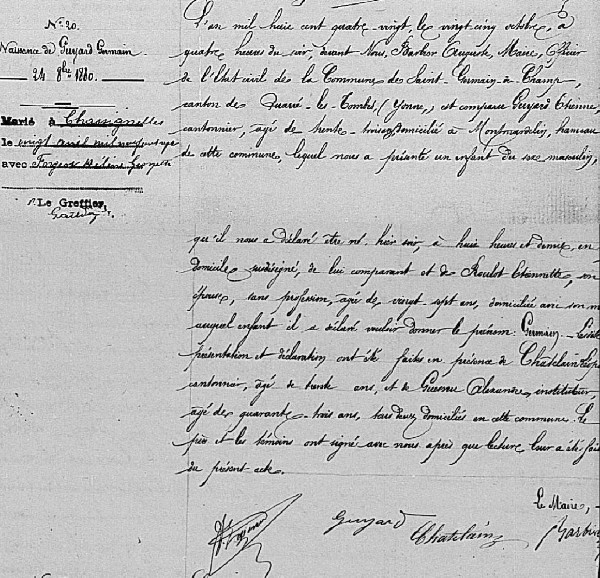 No 20.
Naissance de Guyard Germain
24 8bre 1880.
Marié à Chassignelles
le vingt avril mil neuf
avec Hélène Georgette
Le Greffier,
L'an mil huit cent quatre-vingt, le vingt cinq octobre, à
quatre heures du soir, devant Nous, Auguste Maire, officier
de l'Etat civil de la Commune de Saint-Germain de Champ,
canton de Quarré-les-Tombes, (Yonne,) est comparu Guyard Etienne,
cantonnier, agé de trente-trois domicilié à Montmardelin, hameau
de cette commune, lequel nous a présenté un enfant du sexe masculin,
qu'il nous a déclaré être né hier soir, à huit heures et demie, en
domicile susdésigné, de lui comparant et de Roulot Etiennette, son
épouse, sans profession, agée de vingt sept ans, domiciliée avec son m
auquel enfant il a déclaré vouloir donner le prénom: Germain.
présentation et déclaration ont été faites en présence de Chatelain
cantonnier, agé de trente ans, et de Alexandre, instituteur,
agé de quarante-trois ans, tous deux domiciliés en cette commune. Le
père et les témoins ont signé avec nous après que lecture leur a été fait
du présent acte.
Le Maire,
Guyard
Chatelain